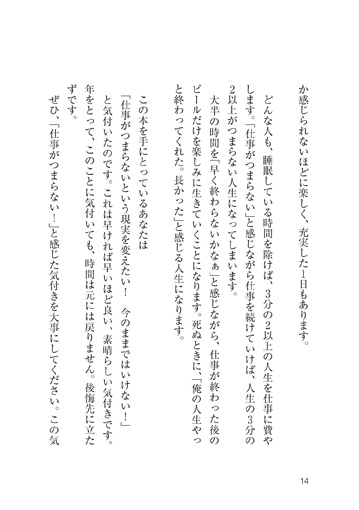 か感じられないほどに楽しく、充実した1日もあります。
どんな人も、睡眠している時間を除けば、3分の2以上の人生を仕事に費や
します。「仕事がつまらない」と感じながら仕事を続けていけば、人生の3分の
2以上がつまらない人生になってしまいます。
大半の時間を「早く終わらないかなぁ」と感じながら、仕事が終わった後の
ビールだけを楽しみに生きていくことになります。死ぬときに、「俺の人生やっ
と終わってくれた。長かった」と感じる人生になります。
この本を手にとっているあなたは
「仕事がつまらないという現実を変えたい！　今のままではいけない！」
と気付いたのです。これは早ければ早いほど良い、素晴らしい気付きです。
年をとって、このことに気付いても、時間は元には戻りません。後悔先に立た
ずです。
ぜひ、「仕事がつまらない！」と感じた気付きを大事にしてください。この気
14